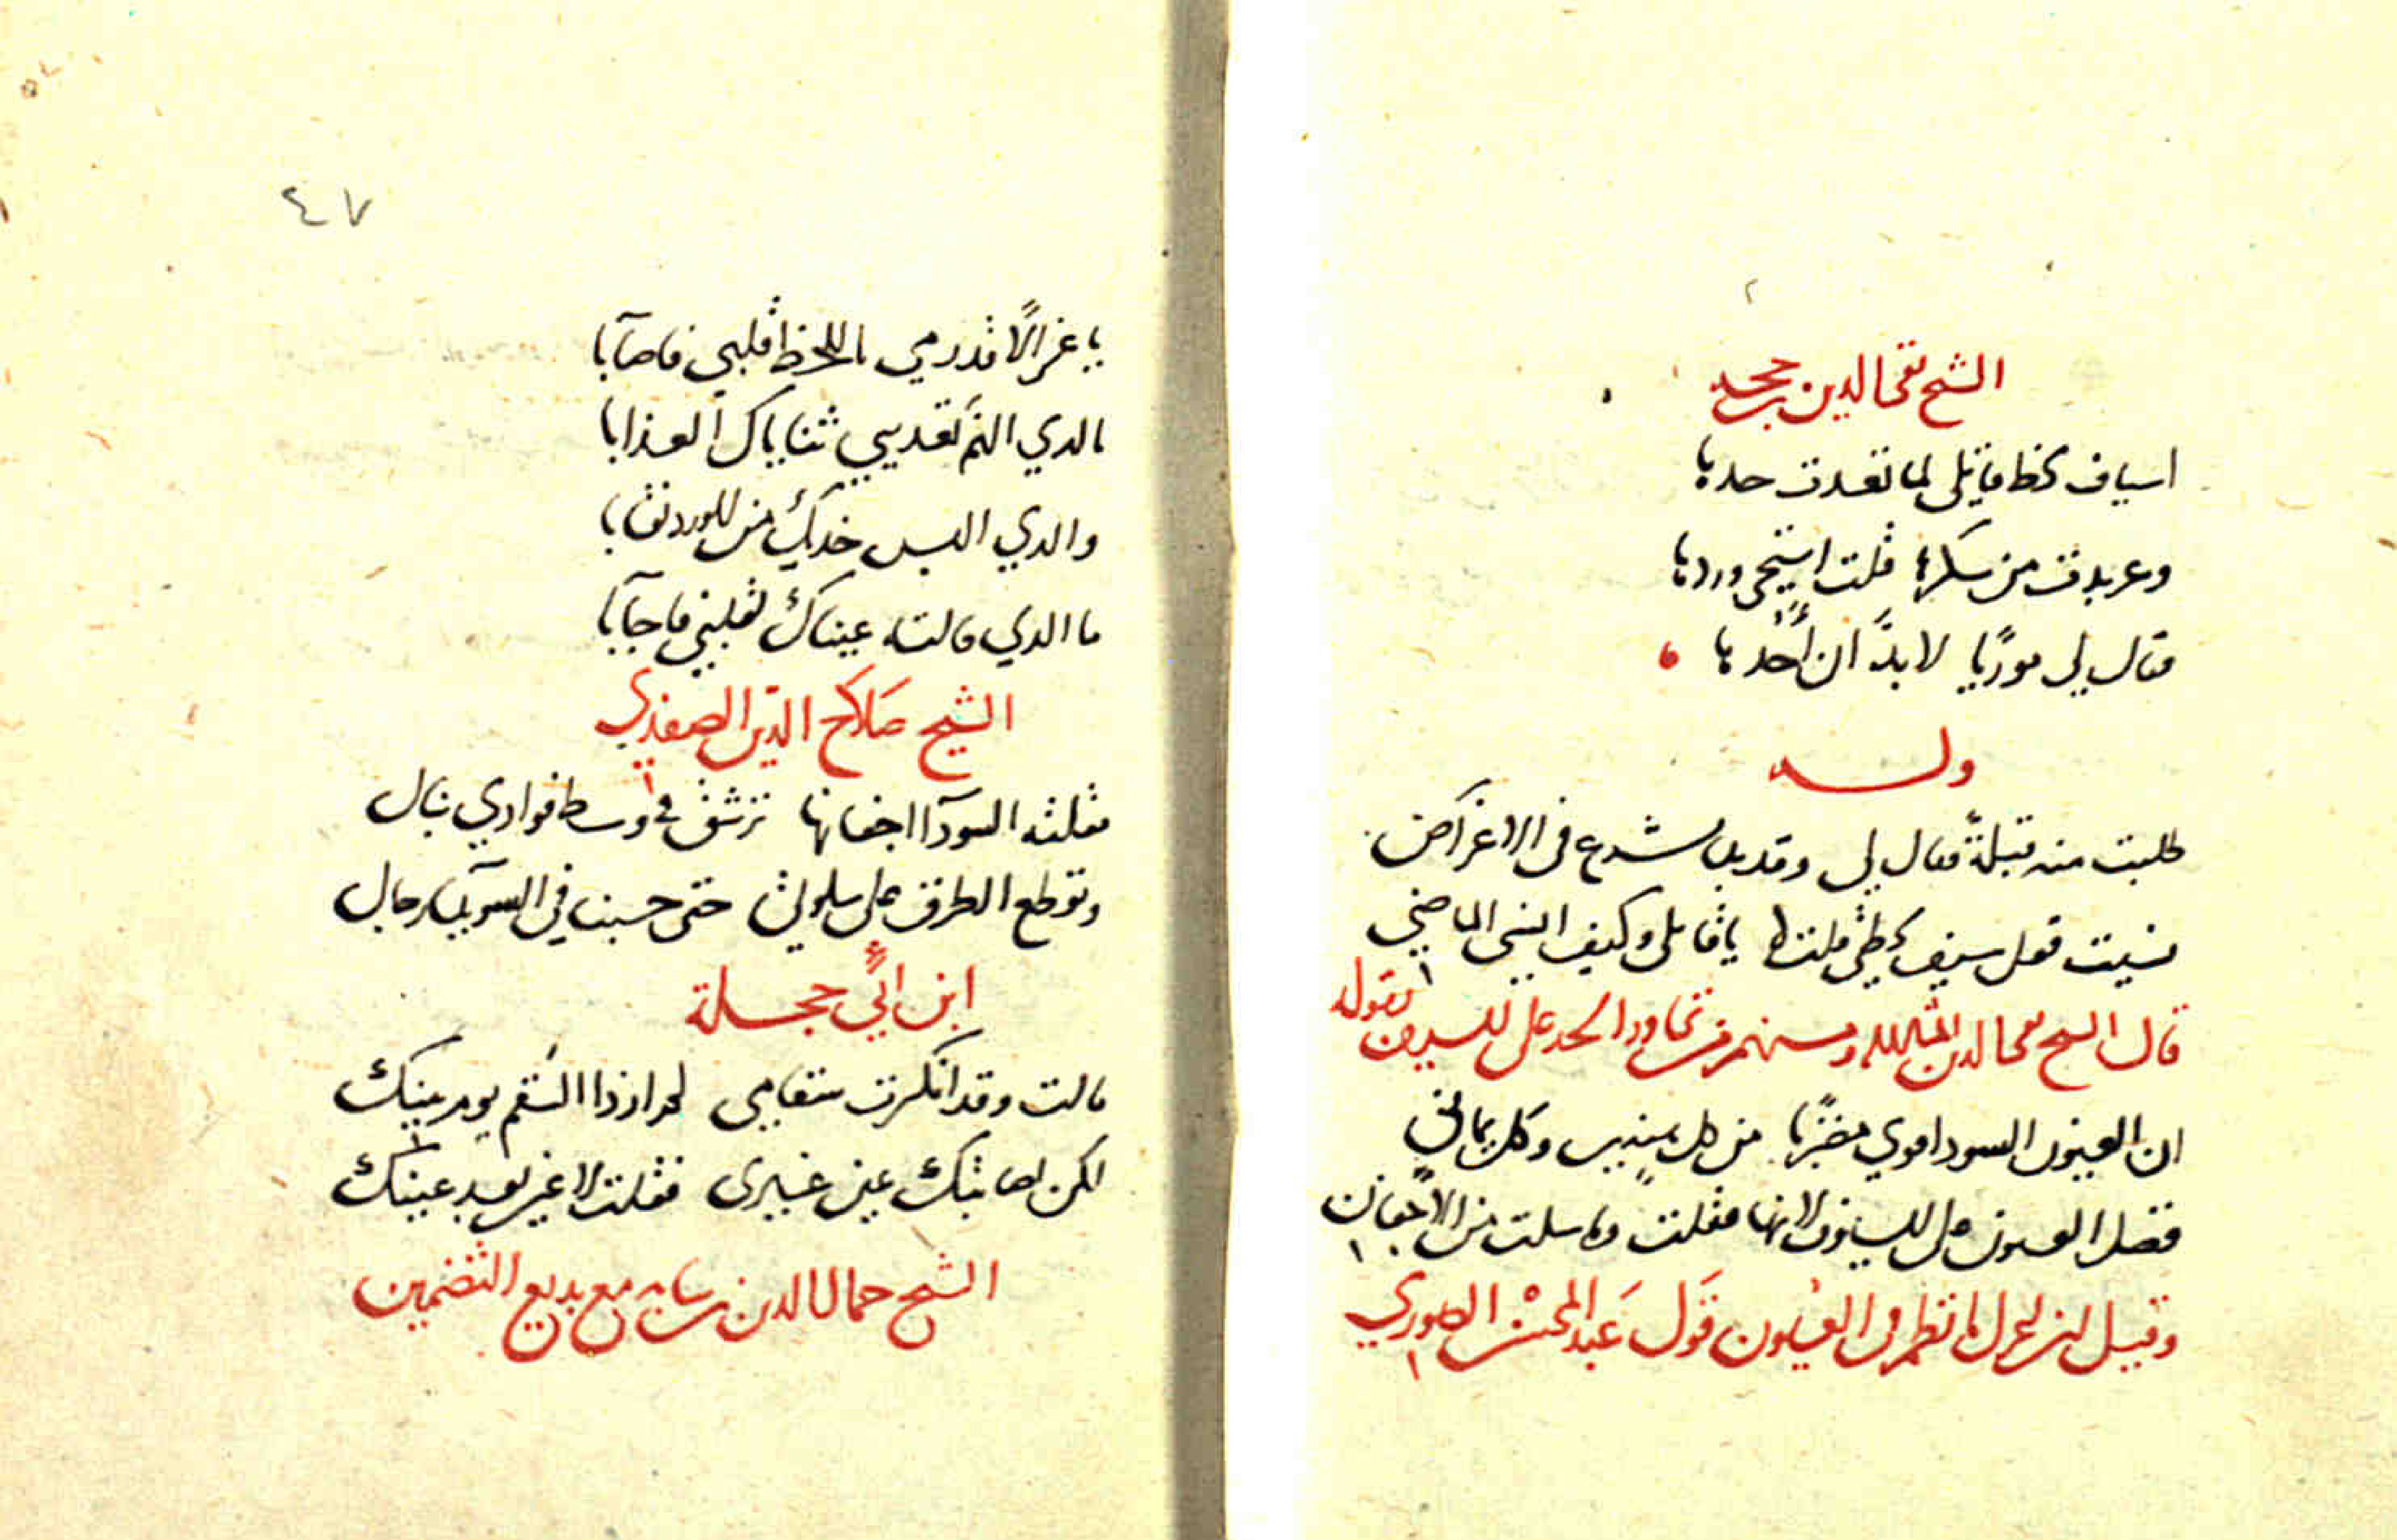 الشيخ تقي الدين بن حجه
اسياف لحظ قاتلي لما تعدت حدها
وعربدت من سكرها قلت استحي وردها
فقال لي مورّيًا لا بدّ ان أحدها
وله
طلبت منه قبلةً فقال لي وقد بدا يشرع في الاعراض
نسيت فعل سيف لحظي قلت لا يا قاتلي وكيف انسى الماضي
قال الشيخ تقي الدين ومنهم من تجاوز الحد على السيوف بقوله
ان العيون السود اقوى مضربًا من كل هندي وكل يماني
فضل العيون على السيوف لانها قتلت ولم تسلت من الاجفان
وقيل ان اغزل ما نظم في العيون قول عبد المحسن الصوري
٤٧
يا غزالًا قد رمى باللحظ قلبي فاصابا
بالذي الهم تعذيبي ثناياك العذابا
والذي البس خديك من الورد نقابا
ما الذي قالته عيناك لقلبي فاجابا
الشيخ صلاح الدين الصفدي
مقلته السودآ اجفانها ترشق في وسط فوادي نبال
وتقطع الطرق على سلوتي حتى حسبنا في السويدا رجال
ابن أبي حجلة
قالت وقد انكرت سقامي لم ار ذا السقم يوم بينك
لكن اصابتك عين غيري فقلت لا غير بعد عينك
الشيخ جمال الدين بن نباته مع بديع التضمين